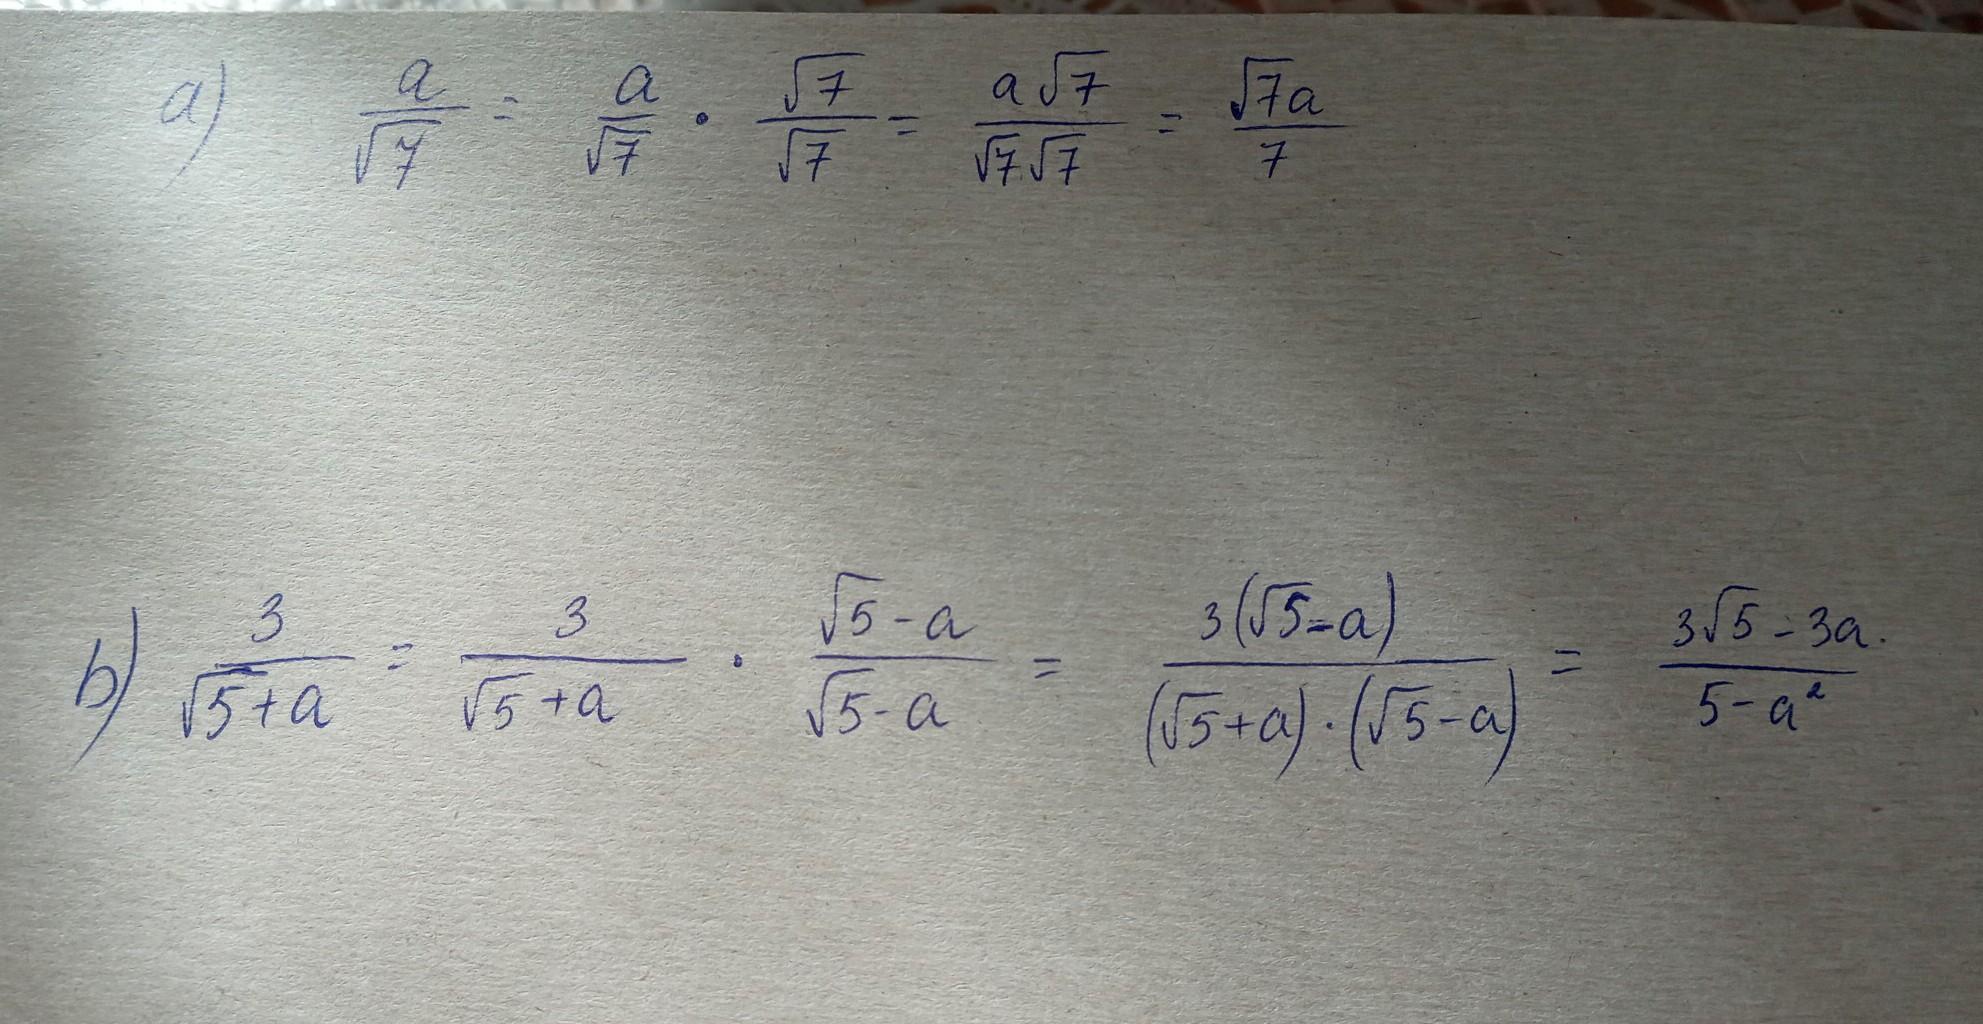 a) a/√7 = a/√7 · √7/√7 = a√7/√7√7 = √7a/7
b) 3/√5+a = 3/√5+a · √5-a/√5-a = 3(√5-a)/(√5+a)·(√5-a) = 3√5-3a./5-a²